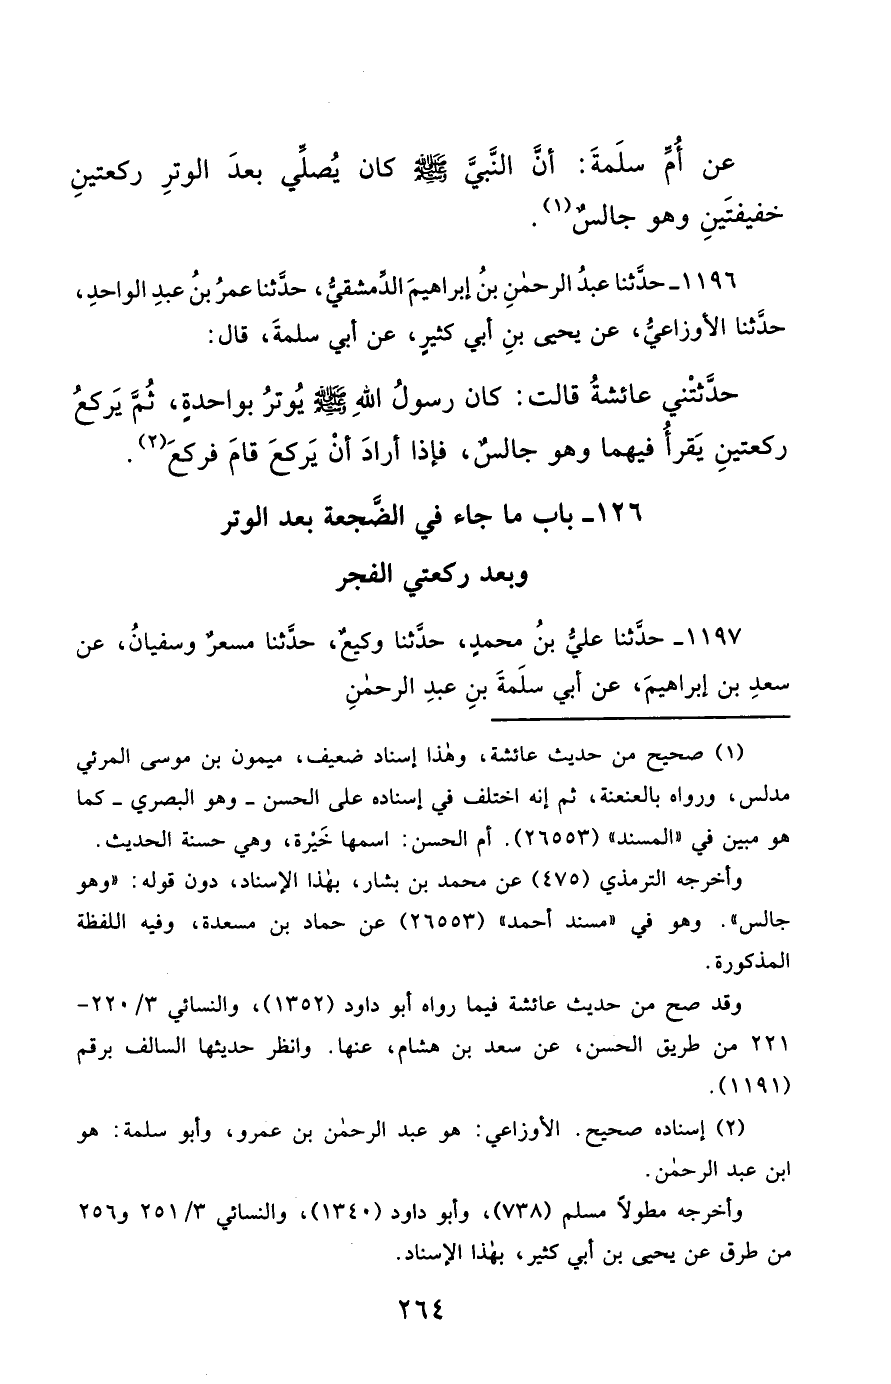 عن أُمِّ سلَمةَ: أنَّ النَّبيَّ ﷺ كان يُصلِّي بعدَ الوترِ ركعتينِ
خفيفتَينِ وهو جالسٌ(١).
١١٩٦ـ حدَّثنا عبدُ الرحمٰنِ بنُ إبراهيمَ الدِّمشقيُّ، حدَّثنا عمرُ بنُ عبدِ الواحدِ،
حدَّثنا الأوزاعيُّ، عن يحيى بنِ أبي كثيرٍ، عن أبي سلمةَ، قال:
حدَّثتْني عائشةُ قالت: كان رسولُ اللهِ ﷺ يُوترُ بواحدةٍ، ثُمَّ يَركعُ
ركعتينِ يَقرأُ فيهما وهو جالسٌ، فإذا أرادَ أنْ يَركعَ قامَ فركعَ(٢).
١٢٦ـ باب ما جاء في الضَّجعة بعد الوتر
وبعد ركعتي الفجر
١١٩٧ـ حدَّثنا عليُّ بنُ محمدٍ، حدَّثنا وكيعٌ، حدَّثنا مسعرٌ وسفيانُ، عن
سعدِ بن إبراهيمَ، عن أبي سلَمةَ بنِ عبدِ الرحمٰنِ
(١) صحيح من حديث عائشة، وهٰذا إسناد ضعيف، ميمون بن موسى المرئي
مدلس، ورواه بالعنعنة، ثم إنه اختلف في إسناده على الحسن ـ وهو البصري ـ كما
هو مبين في «المسند» (٢٦٥٥٣). أم الحسن: اسمها خَيْرة، وهي حسنة الحديث.
وأخرجه الترمذي (٤٧٥) عن محمد بن بشار، بهٰذا الإسناد، دون قوله: «وهو
جالس». وهو في «مسند أحمد» (٢٦٥٥٣) عن حماد بن مسعدة، وفيه اللفظة
المذكورة.
وقد صح من حديث عائشة فيما رواه أبو داود (١٣٥٢)، والنسائي ٣/ ٢٢٠-
٢٢١ من طريق الحسن، عن سعد بن هشام، عنها. وانظر حديثها السالف برقم
(١١٩١).
(٢) إسناده صحيح. الأوزاعي: هو عبد الرحمٰن بن عمرو، وأبو سلمة: هو
ابن عبد الرحمٰن.
وأخرجه مطولاً مسلم (٧٣٨)، وأبو داود (١٣٤٠)، والنسائي ٣/ ٢٥١ و٢٥٦
من طرق عن يحيى بن أبي كثير، بهٰذا الإسناد.
٢٦٤